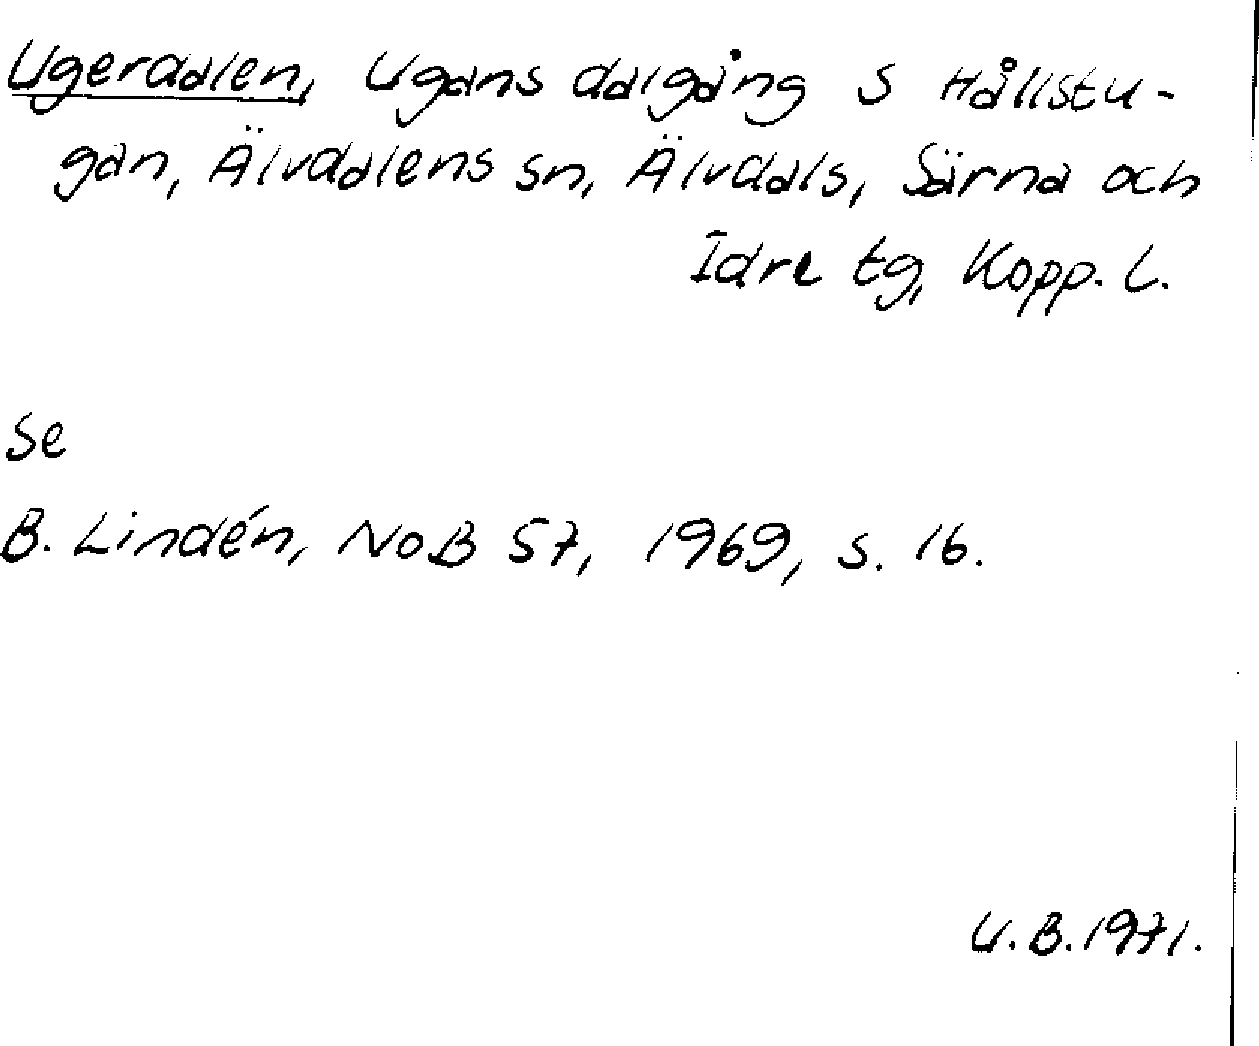 Ugerdalen, Ugans dalgång S Hållstu-
gan, Älvdalens sn, Älvdals, Särna och
Idre tg, Kopp. l.
Se
B. Lindén, NoB 57, 1969, s. 16.
U.B.1971.